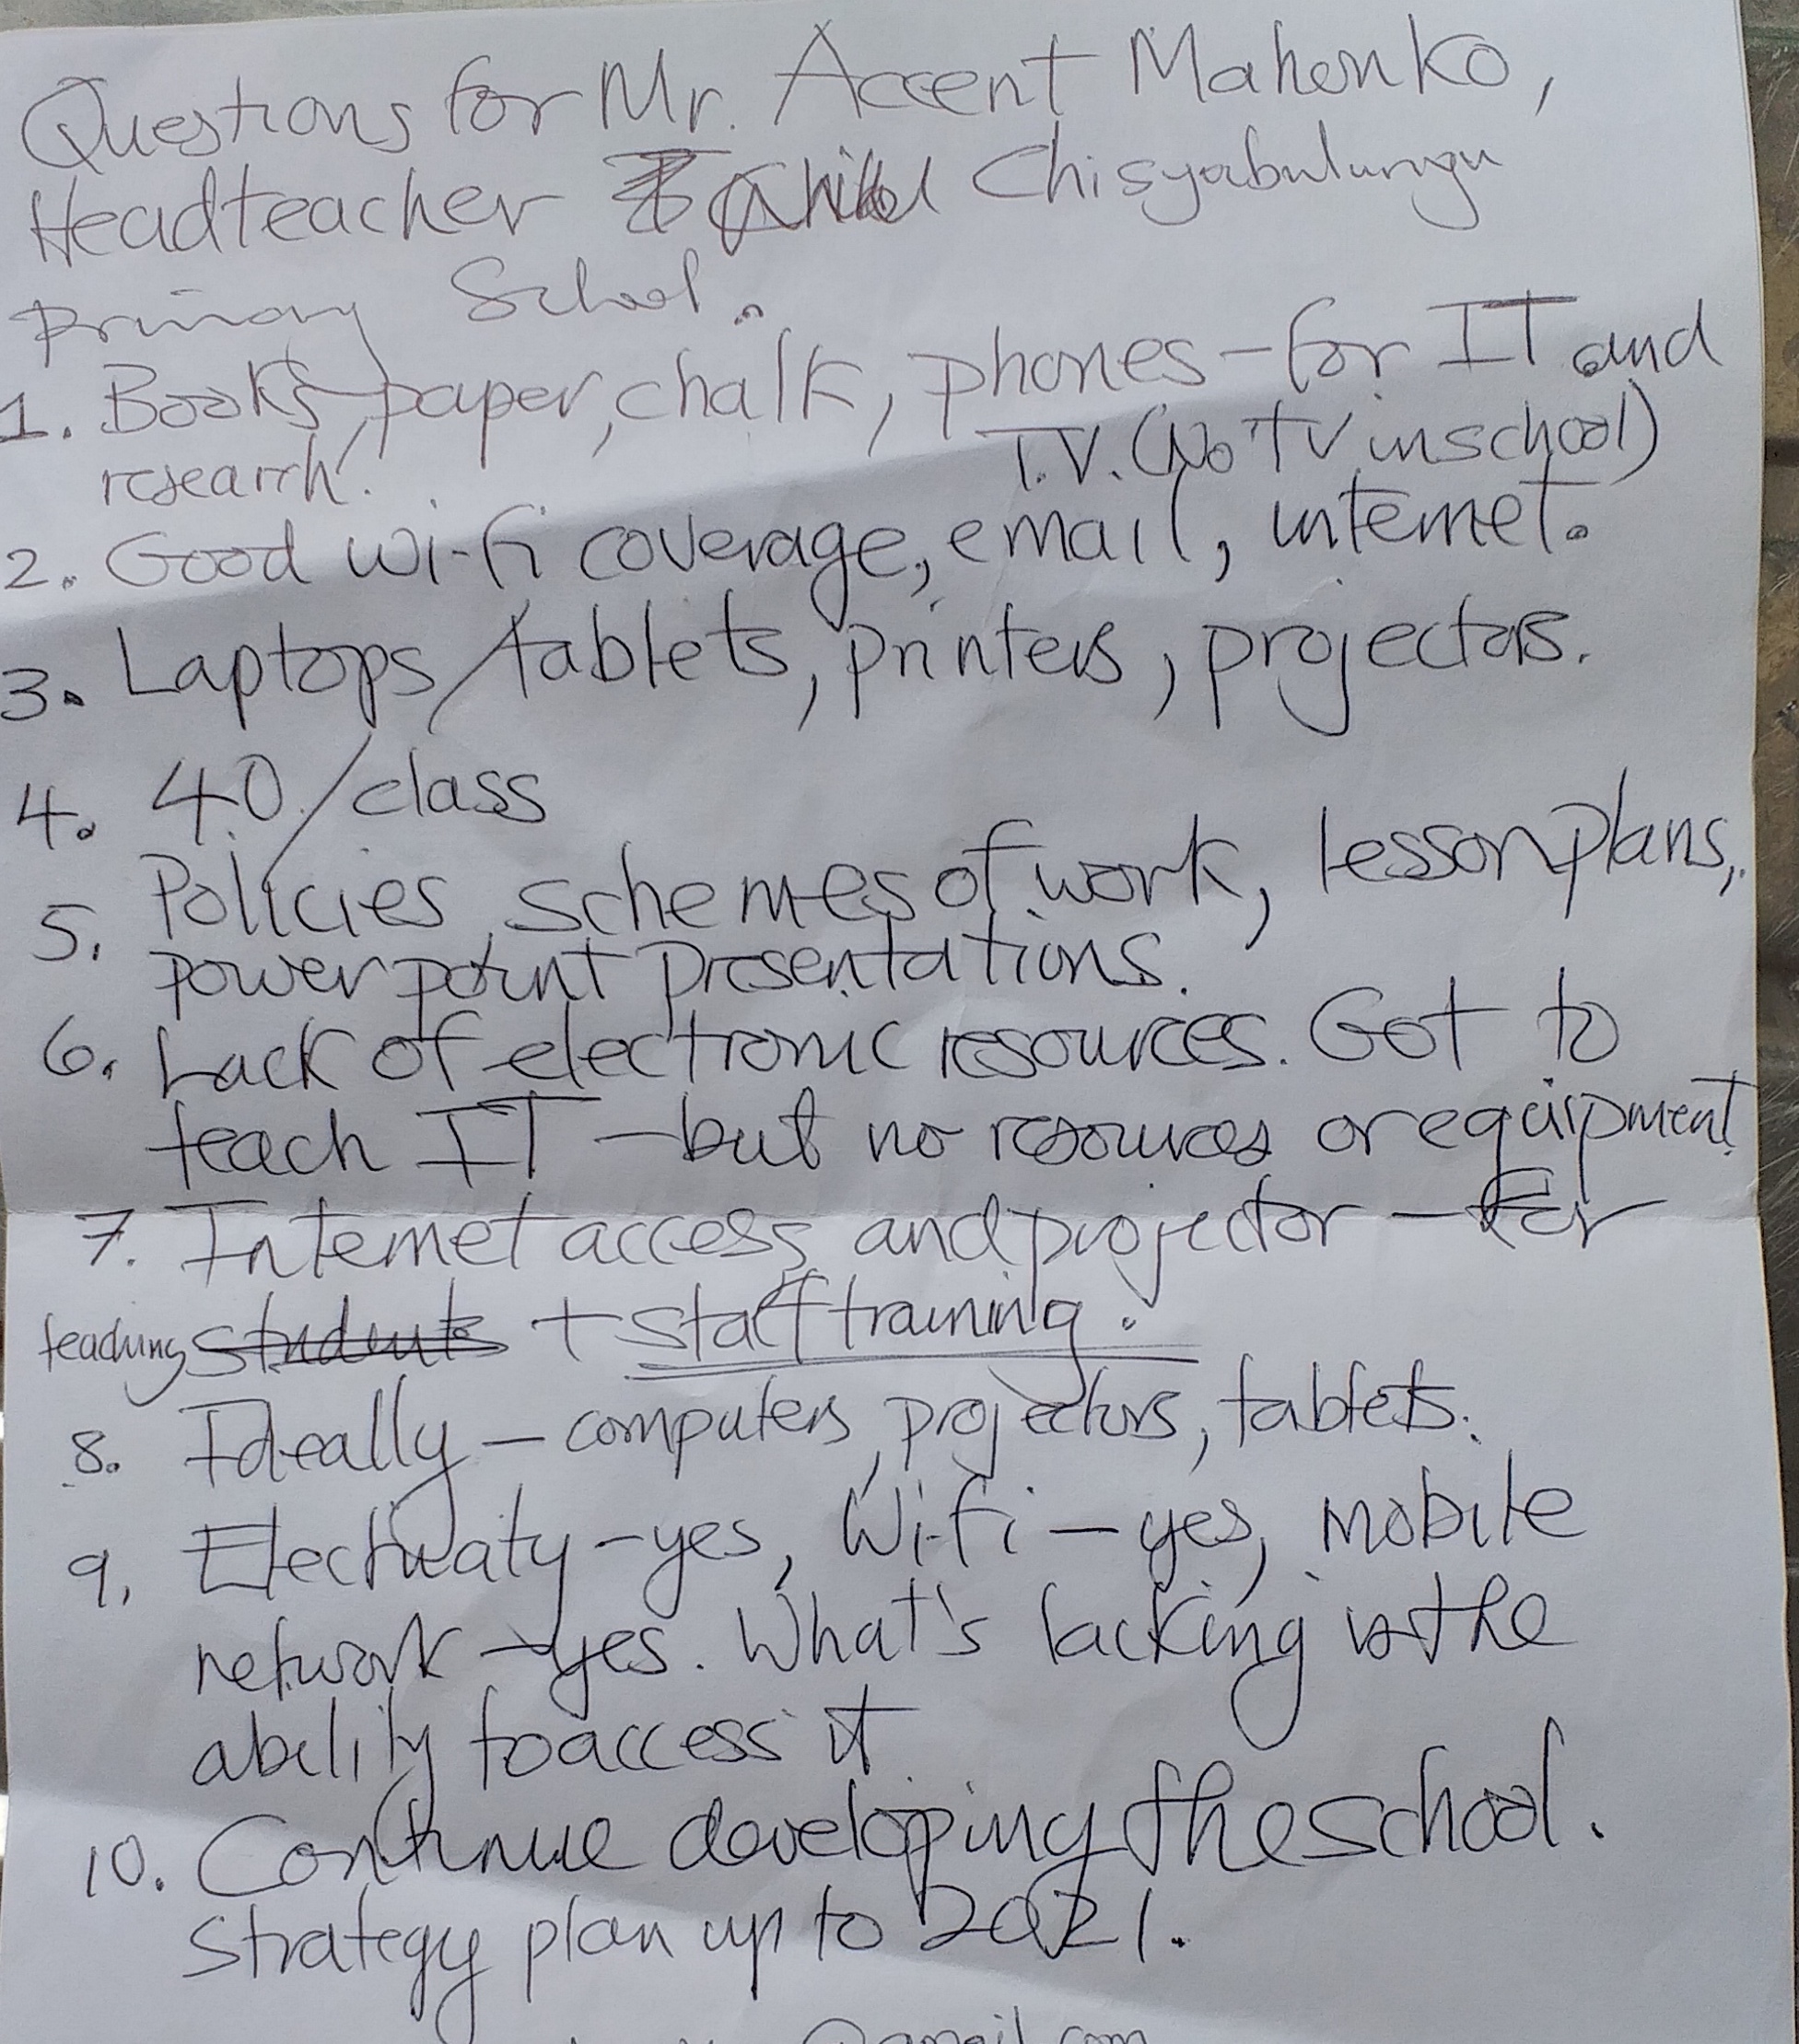 Questions for Mr. Accent Mahonko,
Headteacher Chisyabulungu
Primary School.
1. Books, paper, chalk, phones - for IT and
research. T.V. (No TV in school)
2. Good wi-fi coverage, email, internet.
3. Laptops/tablets, printers, projectors.
4. 40/class
5. Policies, schemes of work, lesson plans,
powerpoint presentations.
6. Lack of electronic resources. Got to
teach IT - but no resources or equipment
7. Internet access and projector - for
teaching students + staff training.
8. Ideally - computers, projectors, tablets.
9. Electricity - yes, Wi-fi - yes, mobile
network - yes. What's lacking is the
ability to access it
10. Continue developing the school.
Strategy plan up to 2021.
@gmail.com